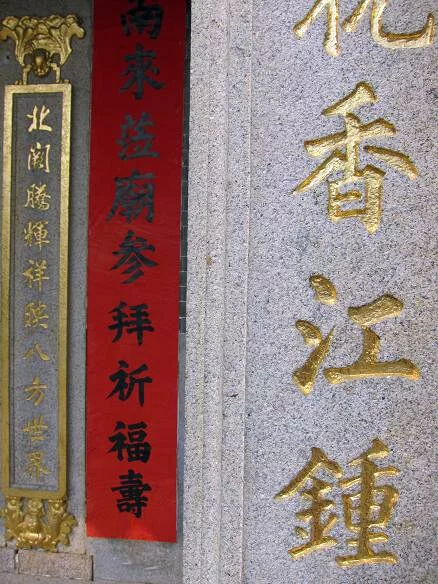 香江鍾
南來莅廟參拜祈福壽
北闕騰輝祥映八方世界